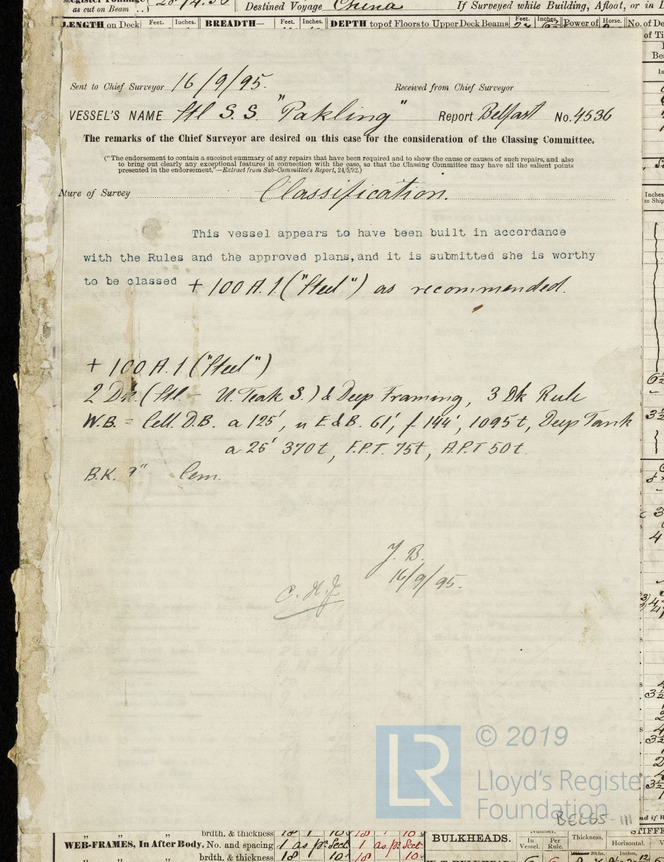 as cut on Beam
Destined Voyage China
If Surveyed while Building, Afloat, or in
LENGTH on Deck Feet. Inches. BREADTH— Feet. Inches. DEPTH top of Floors to Upper Deck Beams Feet. Inches. Power of Horse. No. of De
Sent to Chief Surveyor 16/9/95. Received from Chief Surveyor
VESSEL'S NAME Stl S.S. "Pakling" Report Belfast No. 4536
The remarks of the Chief Surveyor are desired on this case for the consideration of the Classing Committee.
("The endorsement to contain a succinct summary of any repairs that have been required and to show the cause or causes of such repairs, and also
to bring out clearly any exceptional features in connection with the case, so that the Committee may have all the salient points
presented in the endorsement."—Extract from Sub-Committee's Report, 24/5/92.)
ature of Survey Classification.
This vessel appears to have been built in accordance
with the Rules and the approved plans, and it is submitted she is worthy
to be classed + 100 A.1 ("Steel") as recommended.
+ 100 A.1 ("Steel")
2 Dks (Stl - U. Teak S.) & Deep Framing, 3 Dk Rule
W.B = Cell. D.B. a 125', u E & B. 61', f 144', 1095t, Deep Tank
a 25' 370t, F.P.T. 75t, A.P.T 50t.
B.K. 9" Cem.
J. B.
16/9/95.
© 2019
Lloyd's Register
Foundation
BEL05-111
brdth, & thickness 18 10 18 10
WEB-FRAMES, In After Body, No. and spacing 1 as pr Sect 1 as pr Sect
BULKHEADS. In Vessel. Per Rule. Thickness. Horizontal.
brdth. & thickness 18 10 18 10